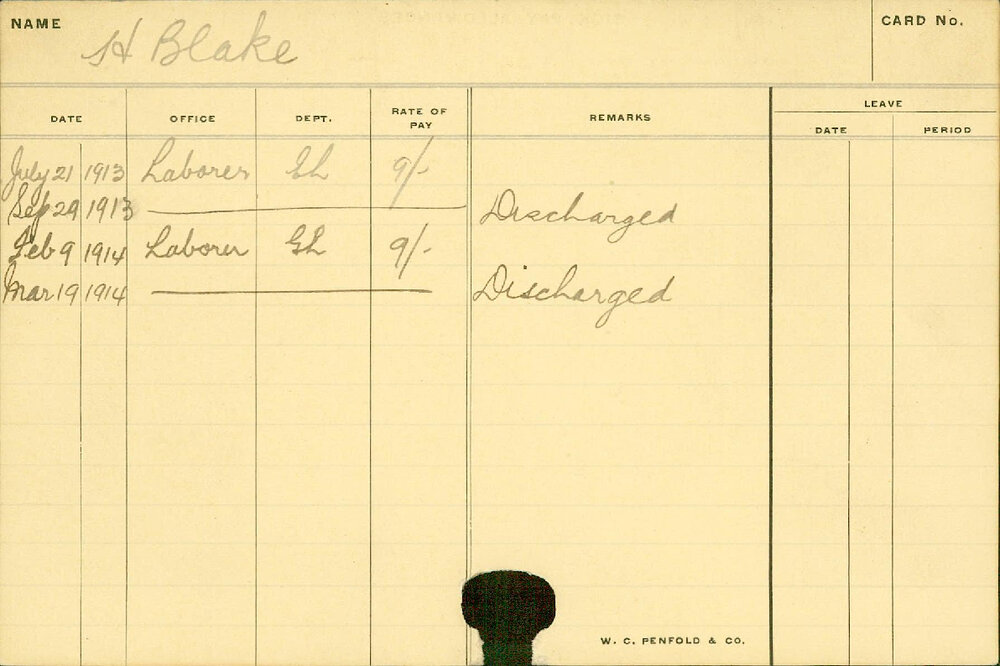 NAME H Blake CARD No.
DATE OFFICE DEPT. RATE OF PAY REMARKS LEAVE
DATE PERIOD
July 21 1913 Laborer GL 9/-
Sep 29 1913 Discharged
Feb 9 1914 Laborer GL 9/-
Mar 19 1914 Discharged
W. C. PENFOLD & CO.